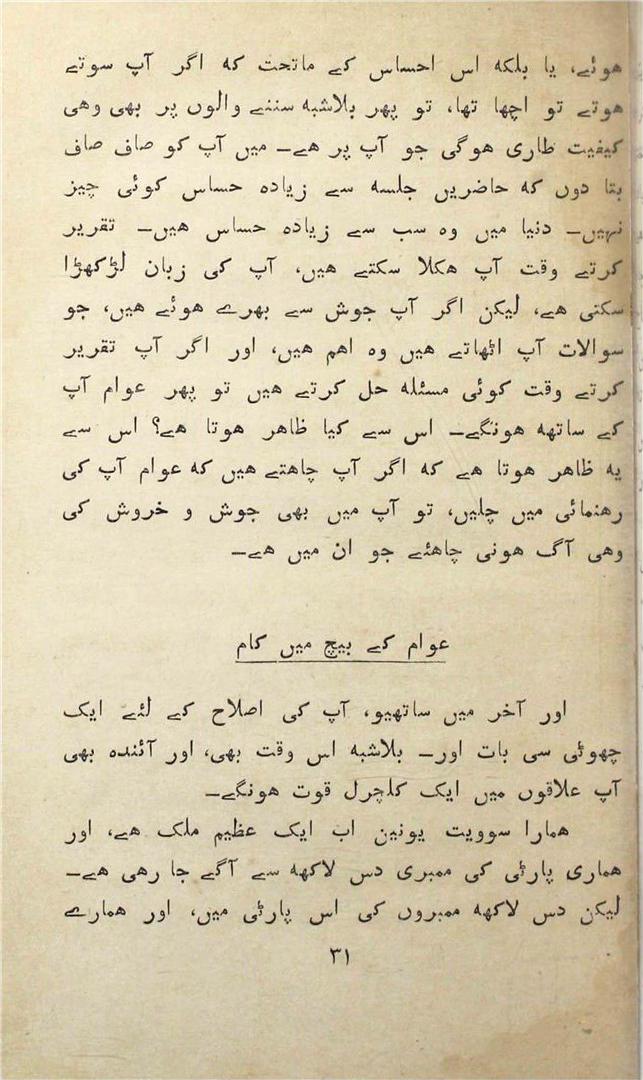 هوئے، یا بلکه اس احساس کے ماتحت که اگر آپ سوتے
هوتے تو اچھا تھا، تو پھر بلاشبه سننے والوں پر بھی وهی
کیفیت طاری هوگی جو آپ پر هے۔ میں آپ کو صاف صاف
بتا دوں که حاضریں جلسه سے زیاده حساس کوئی چیز
نہیں۔ دنیا میں وه سب سے زیاده حساس هیں۔ تقریر
کرتے وقت آپ هکلا سکتے هیں، آپ کی زبان لڑکھڑا
سکتی هے، لیکن اگر آپ جوش سے بھرے هوئے هیں، جو
سوالات آپ اٹھاتے هیں وه اهم هیں، اور اگر آپ تقریر
کرتے وقت کوئی مسئله حل کرتے هیں تو پھر عوام آپ
کے ساتھه هونگے۔ اس سے کیا ظاهر هوتا هے؟ اس سے
یه ظاهر هوتا هے که اگر آپ چاهتے هیں که عوام آپ کی
رهنمائی میں چلیں، تو آپ میں بھی جوش و خروش کی
وهی آگ هونی چاهئے جو ان میں هے۔
عوام کے بیچ میں کام
اور آخر میں ساتھیو، آپ کی اصلاح کے لئے ایک
چھوٹی سی بات اور۔ بلاشبه اس وقت بھی، اور آئنده بھی
آپ علاقوں میں ایک کلچرل قوت هونگے۔
همارا سوویت یونین اب ایک عظیم ملک هے، اور
هماری پارٹی کی ممبری دس لاکھه سے آگے جا رهی هے۔
لیکن دس لاکھه ممبروں کی اس پارٹی میں، اور همارے
۳۱